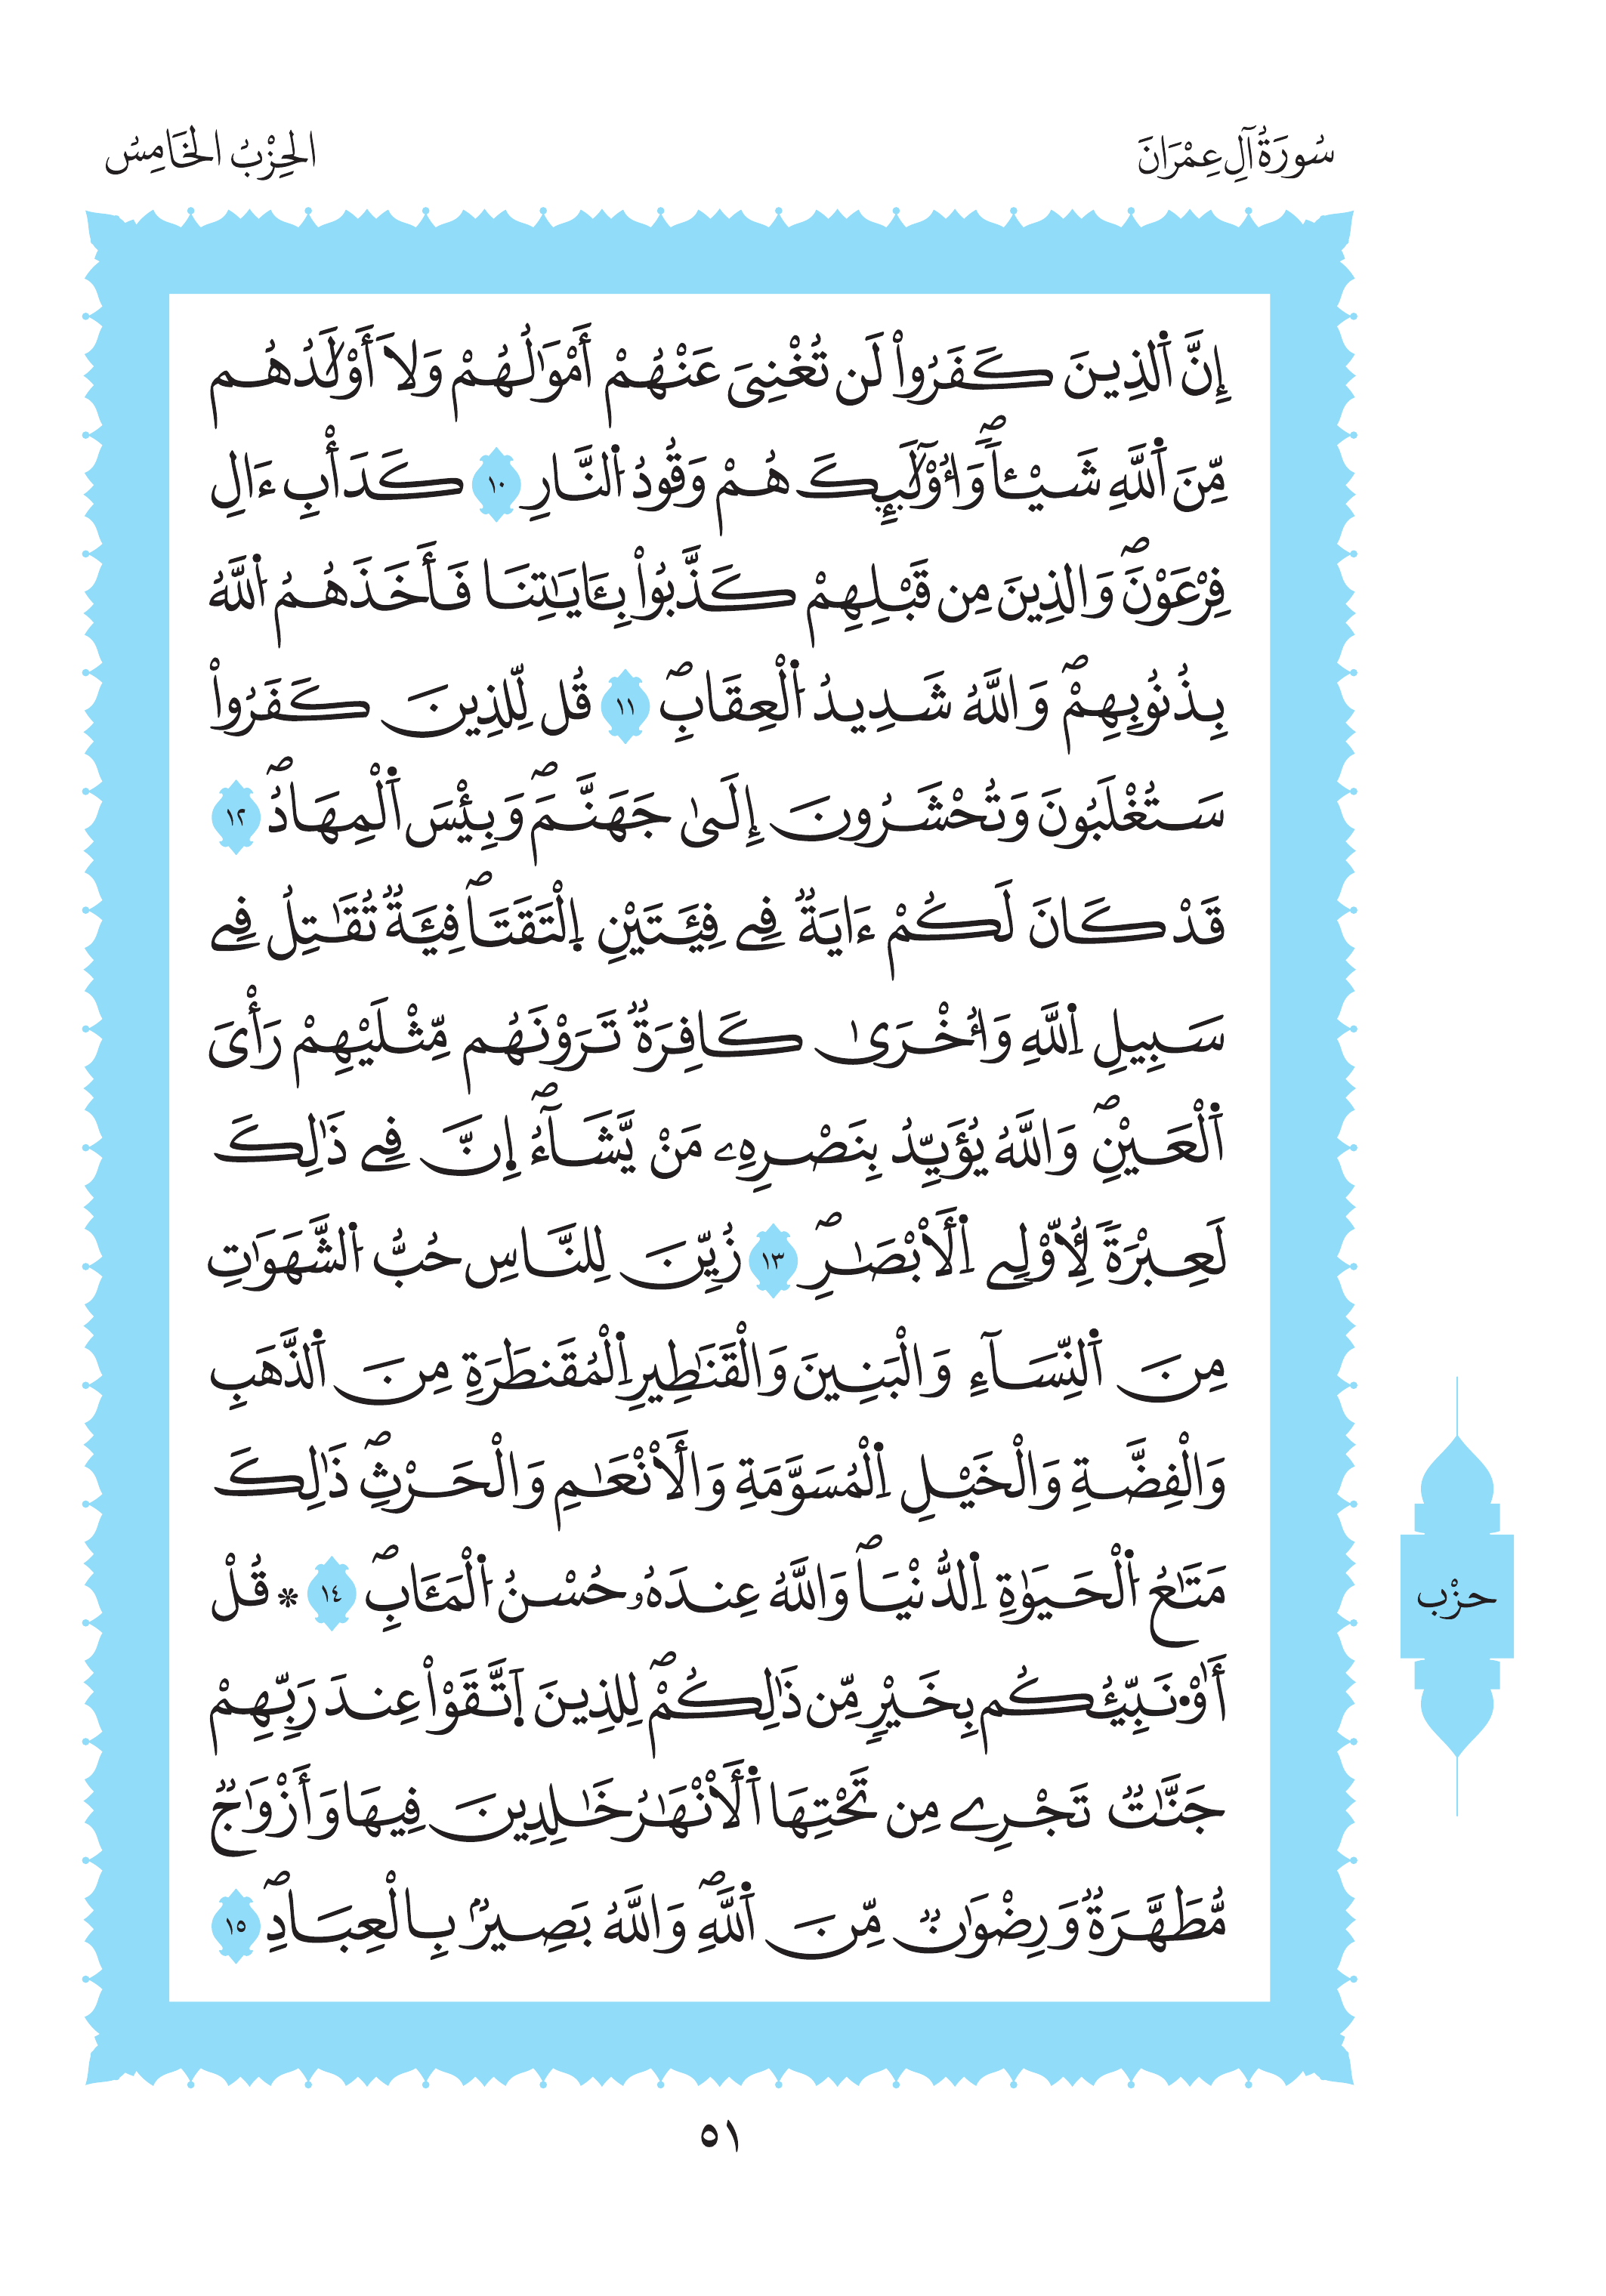 سُورَةُ آلِ عِمْرَانَ
الحِزْبُ الخَامِسُ
إِنَّ اَ۬لذِينَ كَفَرُواْ لَن تُغْنِيَ عَنْهُمْ أَمْوَٰلُهُمْ وَلَا أَوْلَٰدُهُم
مِّنَ اَ۬للَّهِ شَيْـٔاٗۖ وَأُوْلَٰٓئِكَ هُمْ وَقُودُ اُ۬لنَّارِ ١٠ كَدَأْبِ ءَالِ
فِرْعَوْنَۖ وَالذِينَ مِن قَبْلِهِمْ كَذَّبُواْ بِـَٔايَٰتِنَا فَأَخَذَهُمُ اُ۬للَّهُ
بِذُنُوبِهِمْۖ وَاللَّهُ شَدِيدُ اُ۬لْعِقَابِۖ ١١ قُل لِّلذِينَ كَفَرُواْ
سَتُغْلَبُونَ وَتُحْشَرُونَ إِلَىٰ جَهَنَّمَۖ وَبِيْسَ اَ۬لْمِهَادُۖ ١٢
قَدْ كَانَ لَكُمْ ءَايَةٞ فِے فِئَتَيْنِ اِ۪لْتَقَتَاۖ فِئَةٞ تُقَٰتِلُ فِے
سَبِيلِ اِ۬للَّهِ وَأُخْرَىٰ كَافِرَةٞ تَرَوْنَهُم مِّثْلَيْهِمْ رَأْيَ
اَ۬لْعَيْنِۖ وَاللَّهُ يُؤَيِّدُ بِنَصْرِهِۦ مَنْ يَّشَآءُۖ اِنَّ فِے ذَٰلِكَ
لَعِبْرَةٗ لِّأُوْلِے اِ۬لَابْصَٰرِۖ ١٣ زُيِّنَ لِلنَّاسِ حُبُّ اُ۬لشَّهَوَٰتِ
مِنَ اَ۬لنِّسَآءِ وَالْبَنِينَ وَالْقَنَٰطِيرِ اِ۬لْمُقَنطَرَةِ مِنَ اَ۬لذَّهَبِ
وَالْفِضَّةِ وَالْخَيْلِ اِ۬لْمُسَوَّمَةِ وَالَانْعَٰمِ وَالْحَرْثِۖ ذَٰلِكَ
مَتَٰعُ اُ۬لْحَيَوٰةِ اِ۬لدُّنْيَاۖ وَاللَّهُ عِندَهُۥ حُسْنُ اُ۬لْمَـَٔابِۖ ١٤ * قُلْ
أَؤُ۟نَبِّئُكُم بِخَيْرٖ مِّن ذَٰلِكُمْۖ لِلذِينَ اَ۪تَّقَوْاْ عِندَ رَبِّهِمْ
جَنَّٰتٞ تَجْرِے مِن تَحْتِهَا اَ۬لَانْهَٰرُ خَٰلِدِينَ فِيهَا وَأَزْوَٰجٞ
مُّطَهَّرَةٞ وَرِضْوَٰنٞ مِّنَ اَ۬للَّهِۖ وَاللَّهُ بَصِيرُۢ بِالْعِبَادِۖ ١٥
حزْب
٥١